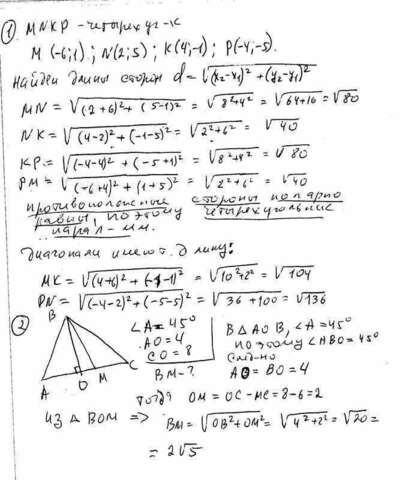 ① MNKP - четырехуг-к
M (-6;1); N(2;5); K(4;-1); P(-4;-5).
Найдем длины сторон d=√(x₂-x₁)²+(y₂-y₁)²
MN = √(2+6)²+(5-1)² = √8²+4² = √64+16 = √80
NK = √(4-2)²+(-1-5)² = √2²+6² = √40
KP = √(-4-4)²+(-5+1)² = √8²+4² = √80
PM = √(-6+4)²+(1+5)² = √2²+6² = √40
противоположные стороны попарно
равны, поэтому четырехугольник
парал-мм.
Диагонали имеют длину:
MK = √(4+6)²+(-1-1)² = √10²+2² = √104
PN = √(-4-2)²+(-5-5)² = √36+100 = √136
②
B
A O M C
∠A=45°
AO=4
CO=8
BM-?
В △AOB, ∠A=45°
поэтому ∠ABO=45°
след-но
AO=BO=4
тогда OM=OC-MC=8-6=2
Из △BOM => BM=√OB²+OM²=√4²+2²=√20=
=2√5